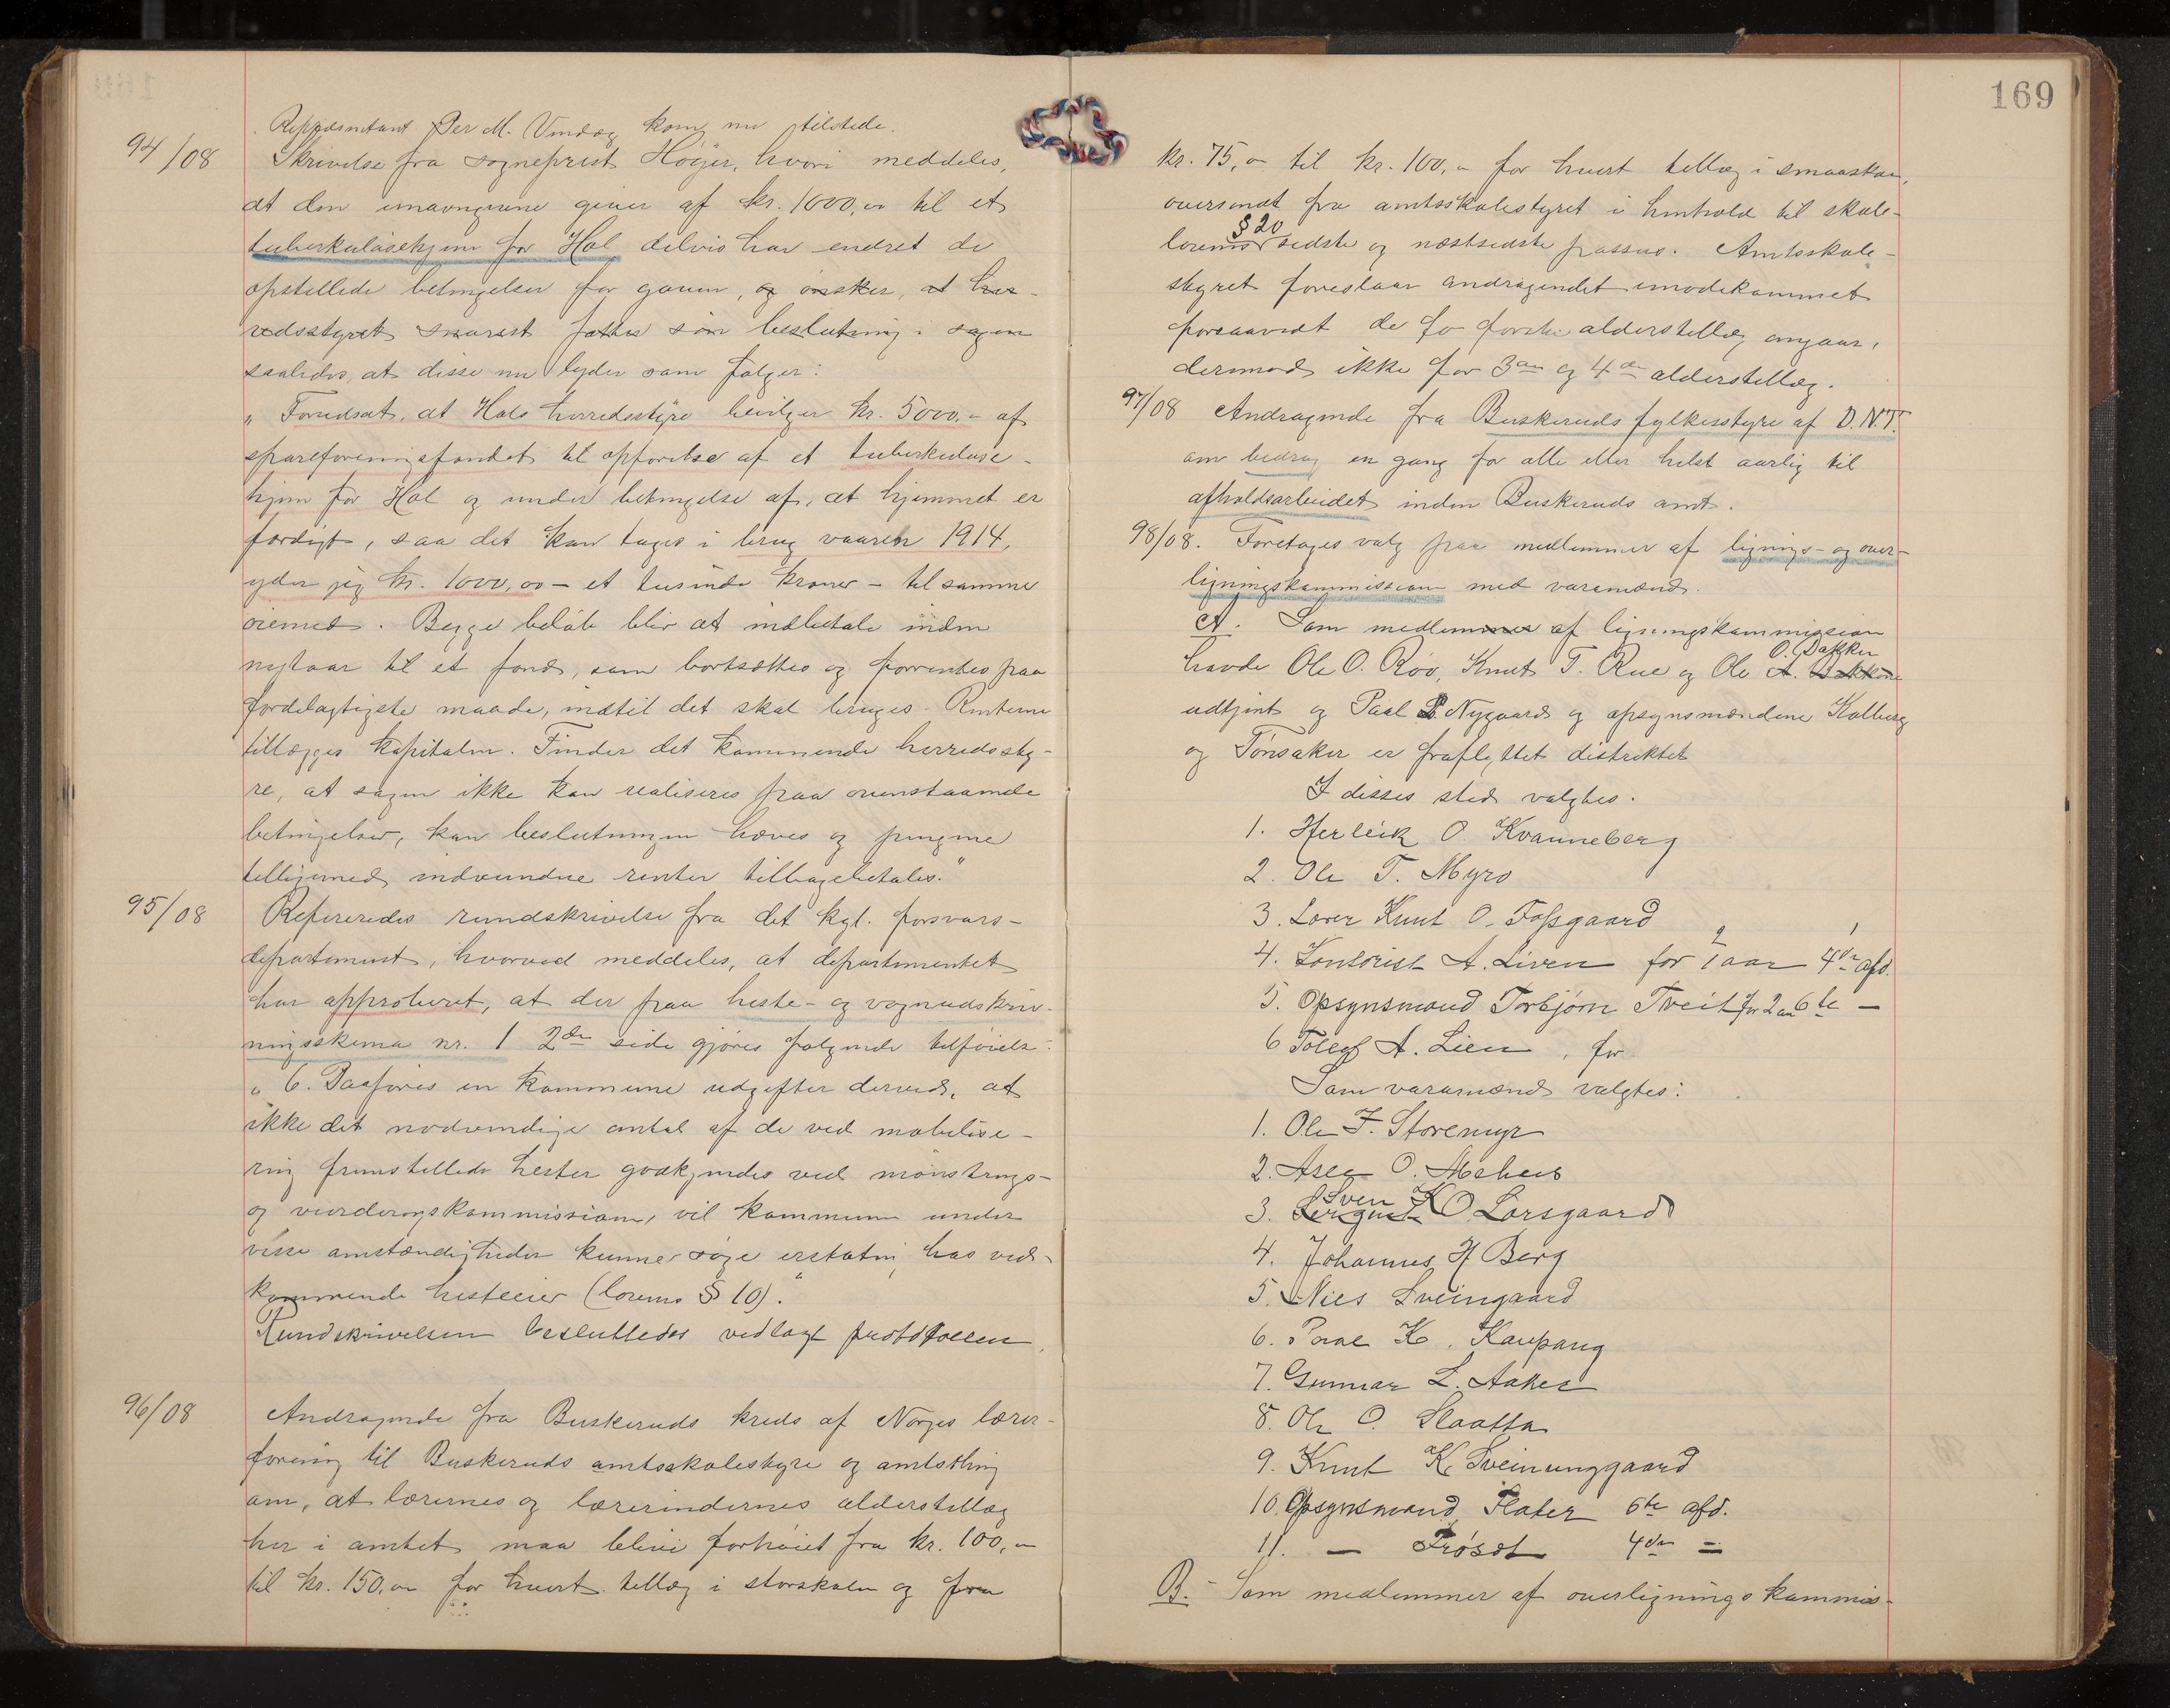 Repræsentant Per M. Vindeg kom nu tilstede.
94/08 Skrivelse fra sogneprest Höyer, hvori meddeles,
at den unavngivne giver af kr. 1000,00 til et
tuberkulosehjem for Hol delvis har endret de
opstillede betingelser for gaven, og ønsker, at her-
redsstyret snarest fatter sin beslutning i sagen
saaledes, at disse nu lyder som følger:
"Forudsat, at Hols herredsstyre bevilger kr. 5000.- af
spareforeningsfondet til opførelse af et tuberkulose-
hjem for Hol og under betingelse af, at hjemmet er
færdigt, saa det kan tages i brug vaaren 1914,
yder jeg kr. 1000,00 - et tusinde kroner - til samme
øiemed. Begge beløb blir at indbetale inden
nytaar til et fond, som bortsættes og forrentes paa
fordelagtigste maade, indtil det skal bruges. Renterne
tillægges kapitalen. Finder det kommende herredssty-
re, at sagen ikke kan realiseres paa ovenstaaende
betingelser, kan beslutningen hæves og pengene
tilligemed indvundne renter tilbagebetales."
95/08 Refereredes rundskrivelse fra det kgl. forsvars-
departement, hvorved meddeles, at departementet
har approberet, at der paa heste- og vognudskriv-
ningsskema nr. 1 2den side gjøres følgende tilføielse:
"6. Paaføres en kommune udgifter derved, at
ikke det nødvendige antal af de ved mobilise-
ring fremstillede hester godkjendes ved mønstrings-
og vurderingskommissionen, vil kommunen under
visse omstændigheder kunne søge erstatning hos ved-
kommende hesteeier (lovens § 10)."
Rundskrivelsen besluttedes vedlagt protokollen.
96/08 Andragende fra Buskeruds kreds af Norges lærer-
forening til Buskeruds amtsskolestyre og amtsthing
om, at lærernes og lærerindernes alderstillæg
her i amtet maa blive forhøiet fra kr. 100,00
til kr. 150,00 for hvert tillæg i storskolen og fra
169
kr. 75,00 til kr. 100,00 for hvert tillæg i smaaskolen,
oversendt fra amtsskolestyret i henhold til skole-
lovens § 20 sidste og næstsidste passus. Amtsskole-
styret foreslaar andragendet imødekommet
forsaavidt de to første alderstillæg angaar,
derimod ikke for 3die og 4de alderstillæg.
97/08 Andragende fra Buskeruds fylkesstyre af D.N.T.
om bidrag en gang for alle eller helst aarlig til
afholdsarbeidet inden Buskeruds amt.
98/08. Foretages valg paa medlemmer af lignings- og over-
ligningskommission med varamænd.
A. Som medlemmer af ligningskommission
O. Bakken
havde Ole O. Röv, Knut T. Rue og Ole A. Bakken
udtjent og Paal L. Nygaard og opsynsmændene Kolberg
og Tönsaker er fraflyttet distriktet
I disses sted valgtes.
1. Herleik O. Kvanneberg
2. Ole T. Myro
3. Lærer Knut O. Fossgaard
4. Kontorist A. Liven for 1 2 aar 4de afd.
5. Opsynsmand Torbjörn Tveit for 2 aar 6te —
6 Tollef A. Lien, for
Som varamænd valgtes:
1. Ole F. Storemyr
2. Asle O. Mehus
3. Sven K O. Larsgaard
4. Johannes H Berg
5. Niels Sveingaard
6. Paal K. Kaupang
7. Gunnar L. Aaker
8. Ole O. Slaatta
9. Knut K. Sveinunggaard
10. Opsynsmand Flater 6te afd.
11. — Frösét 4de =
B. Som medlemmer af overligningskommis-